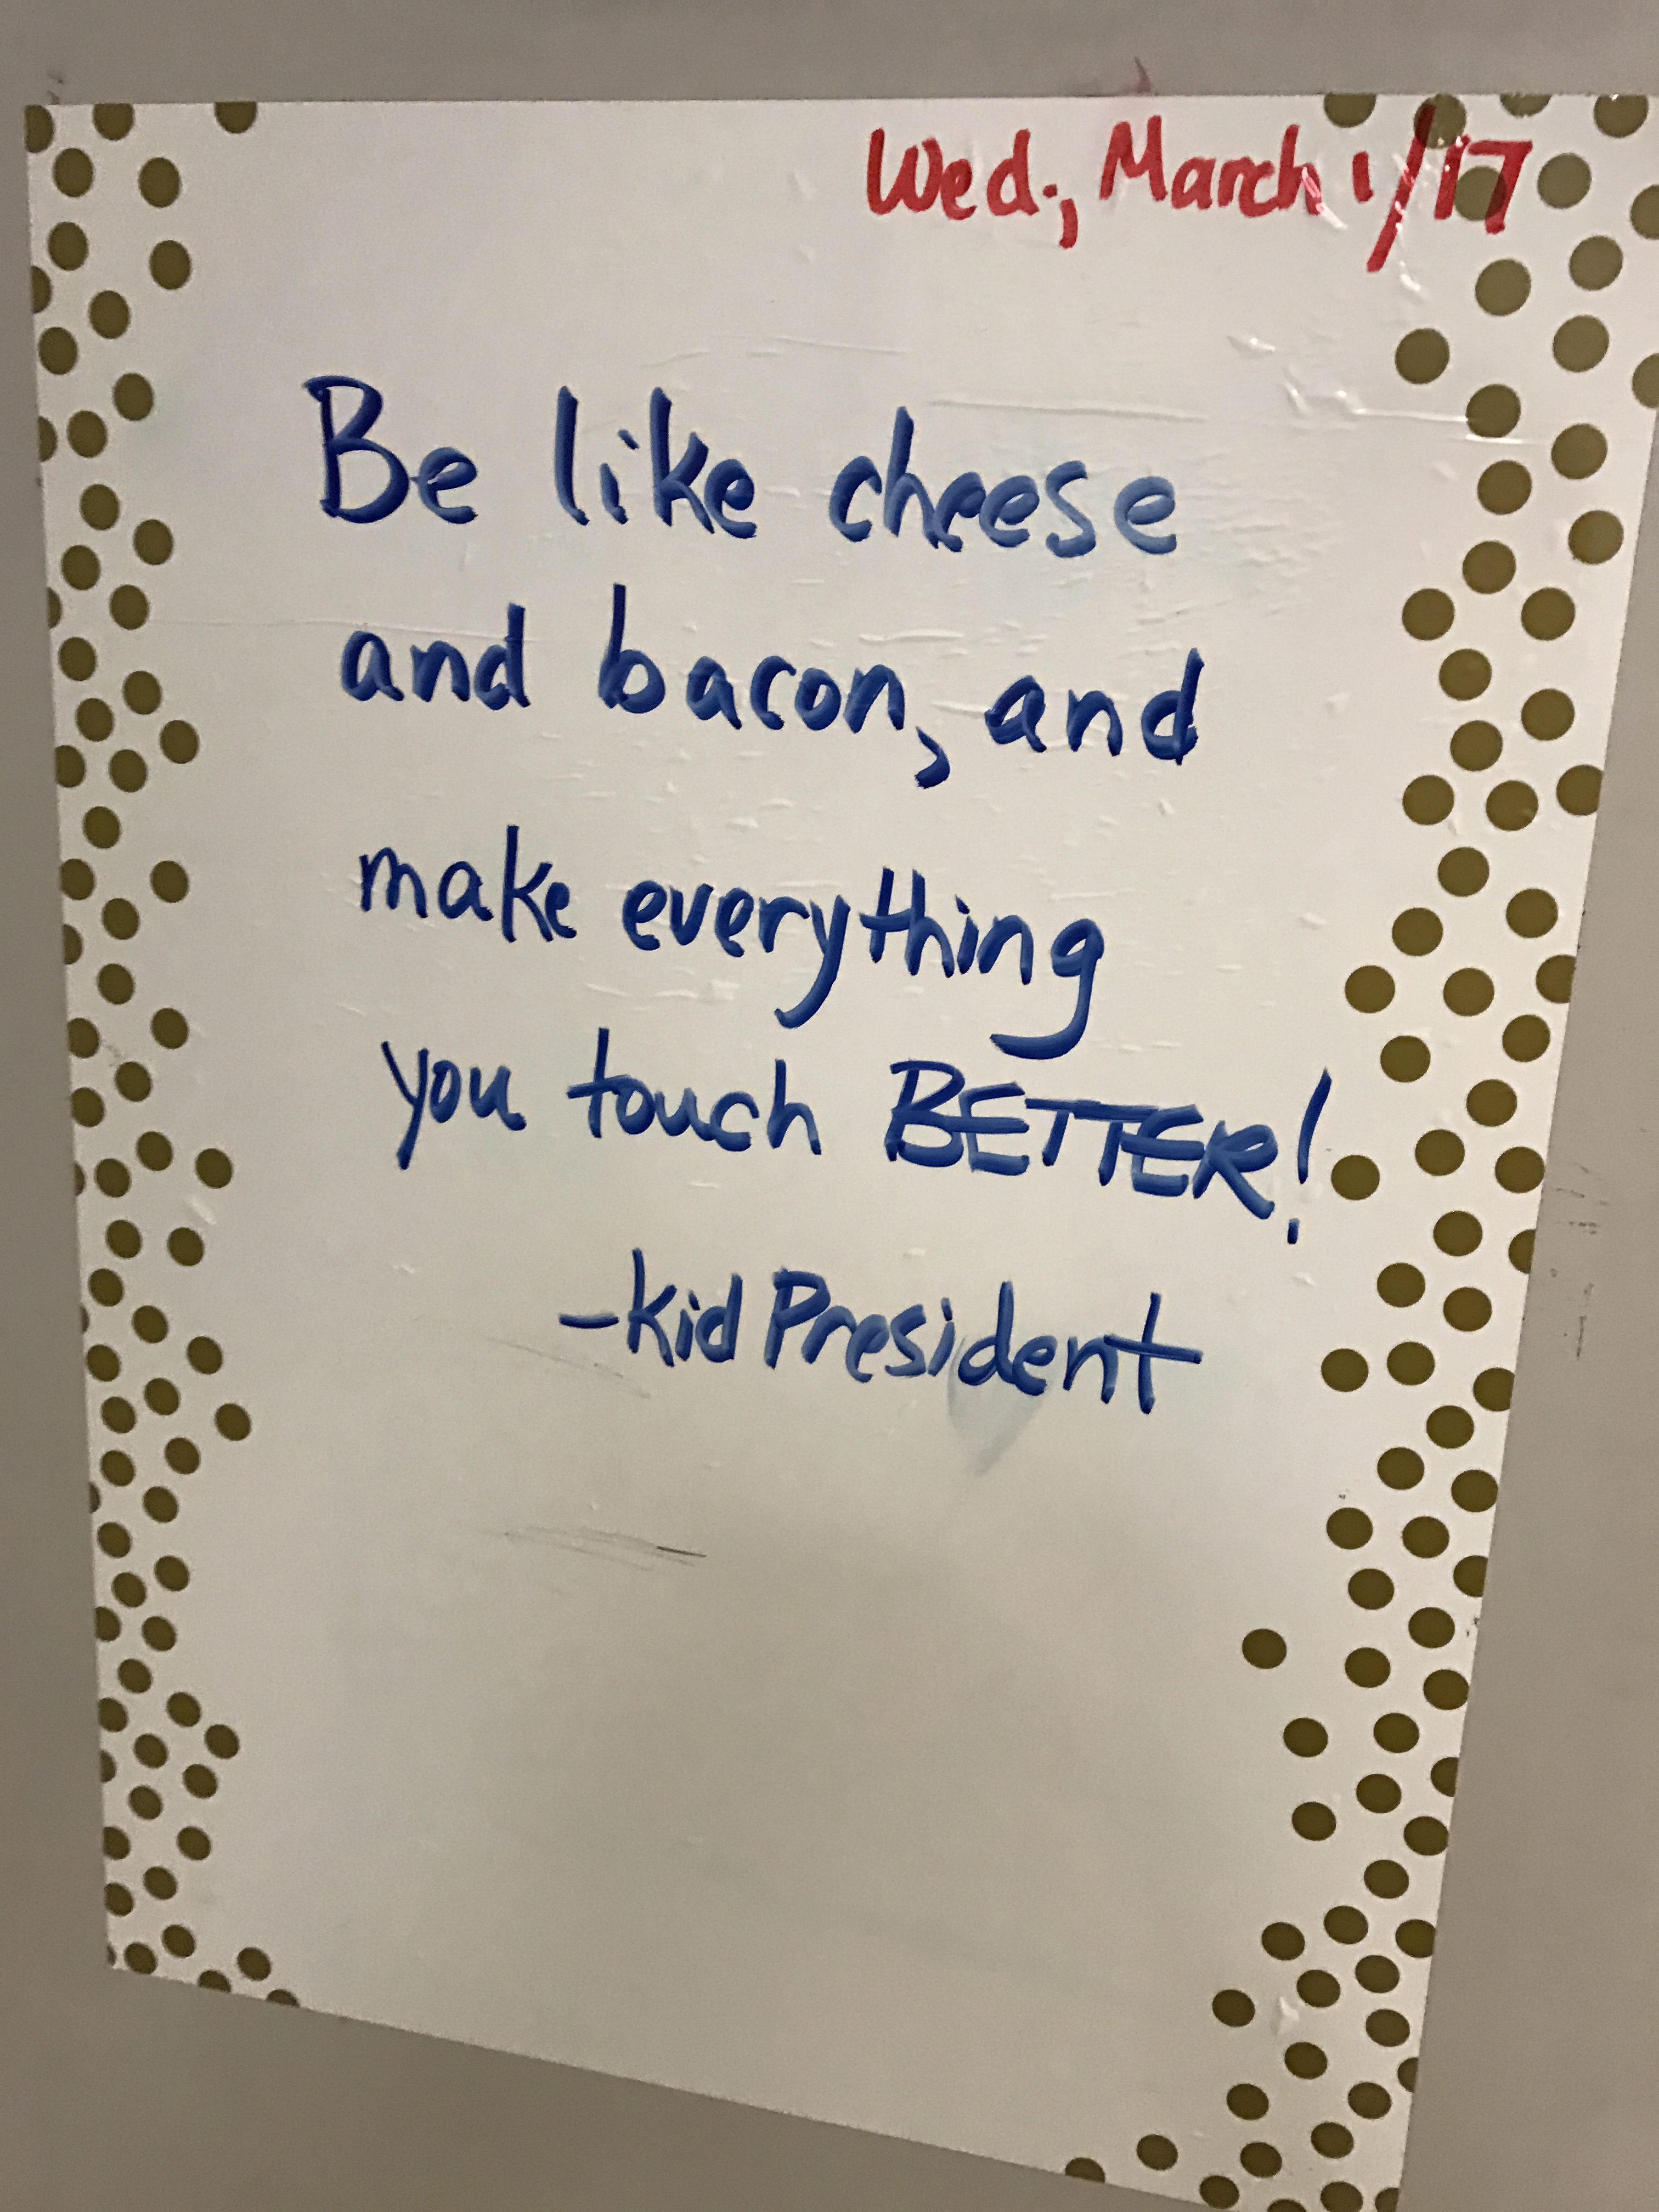 Wed., March 1/17
Be like cheese
and bacon, and
make everything
you touch BETTER!
-kid President